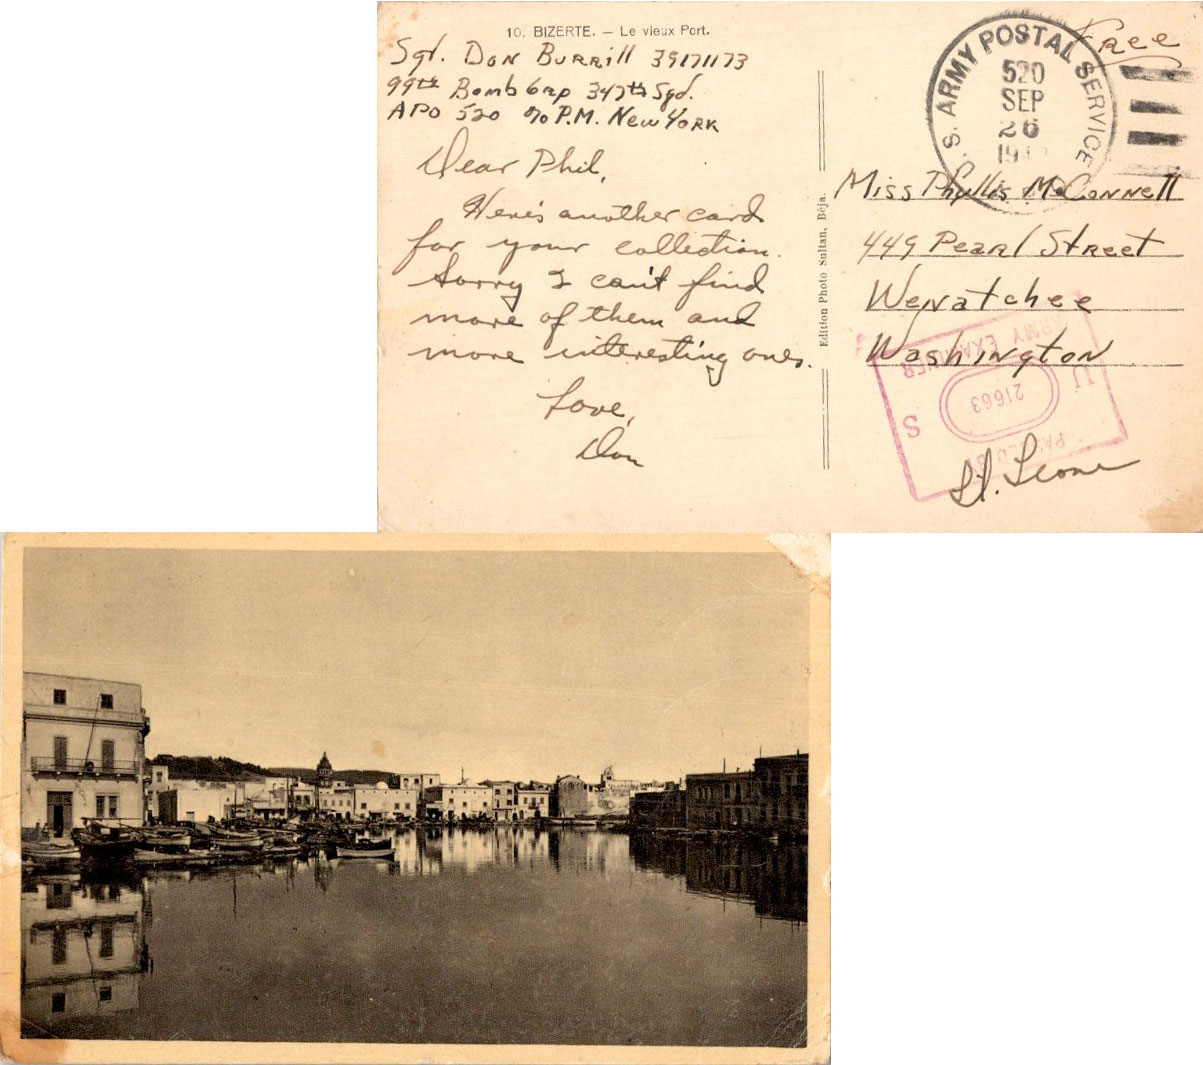 10. BIZERTE. – Le vieux Port.
Sgt. Don Burrill 39171173
99th Bomb Grp 347th Sqd.
APO 520 c/o P.M. New York
Dear Phil,
Here's another card
for your collection.
Sorry I can't find
more of them and
more interesting ones.
Love,
Don
Edition Photo Sultan, Béja.
Free
U. S. ARMY POSTAL SERVICE
520
SEP
26
Miss Phyllis McConnell
449 Pearl Street
Wenatchee
Washington
PASSED BY
U S
21663
ARMY EXAMINER
Lt.